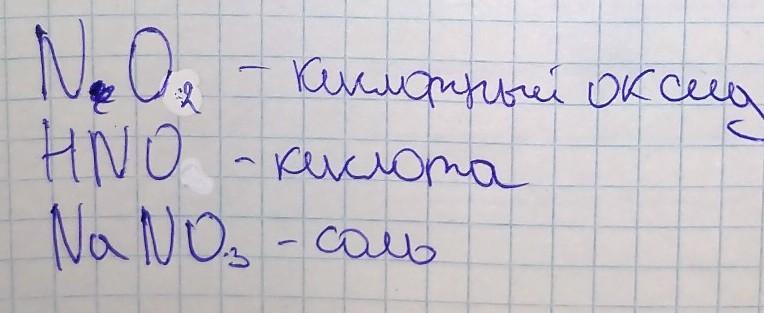 N₂O₂ - кислотный оксид
HNO - кислота
NaNO₃ - соль